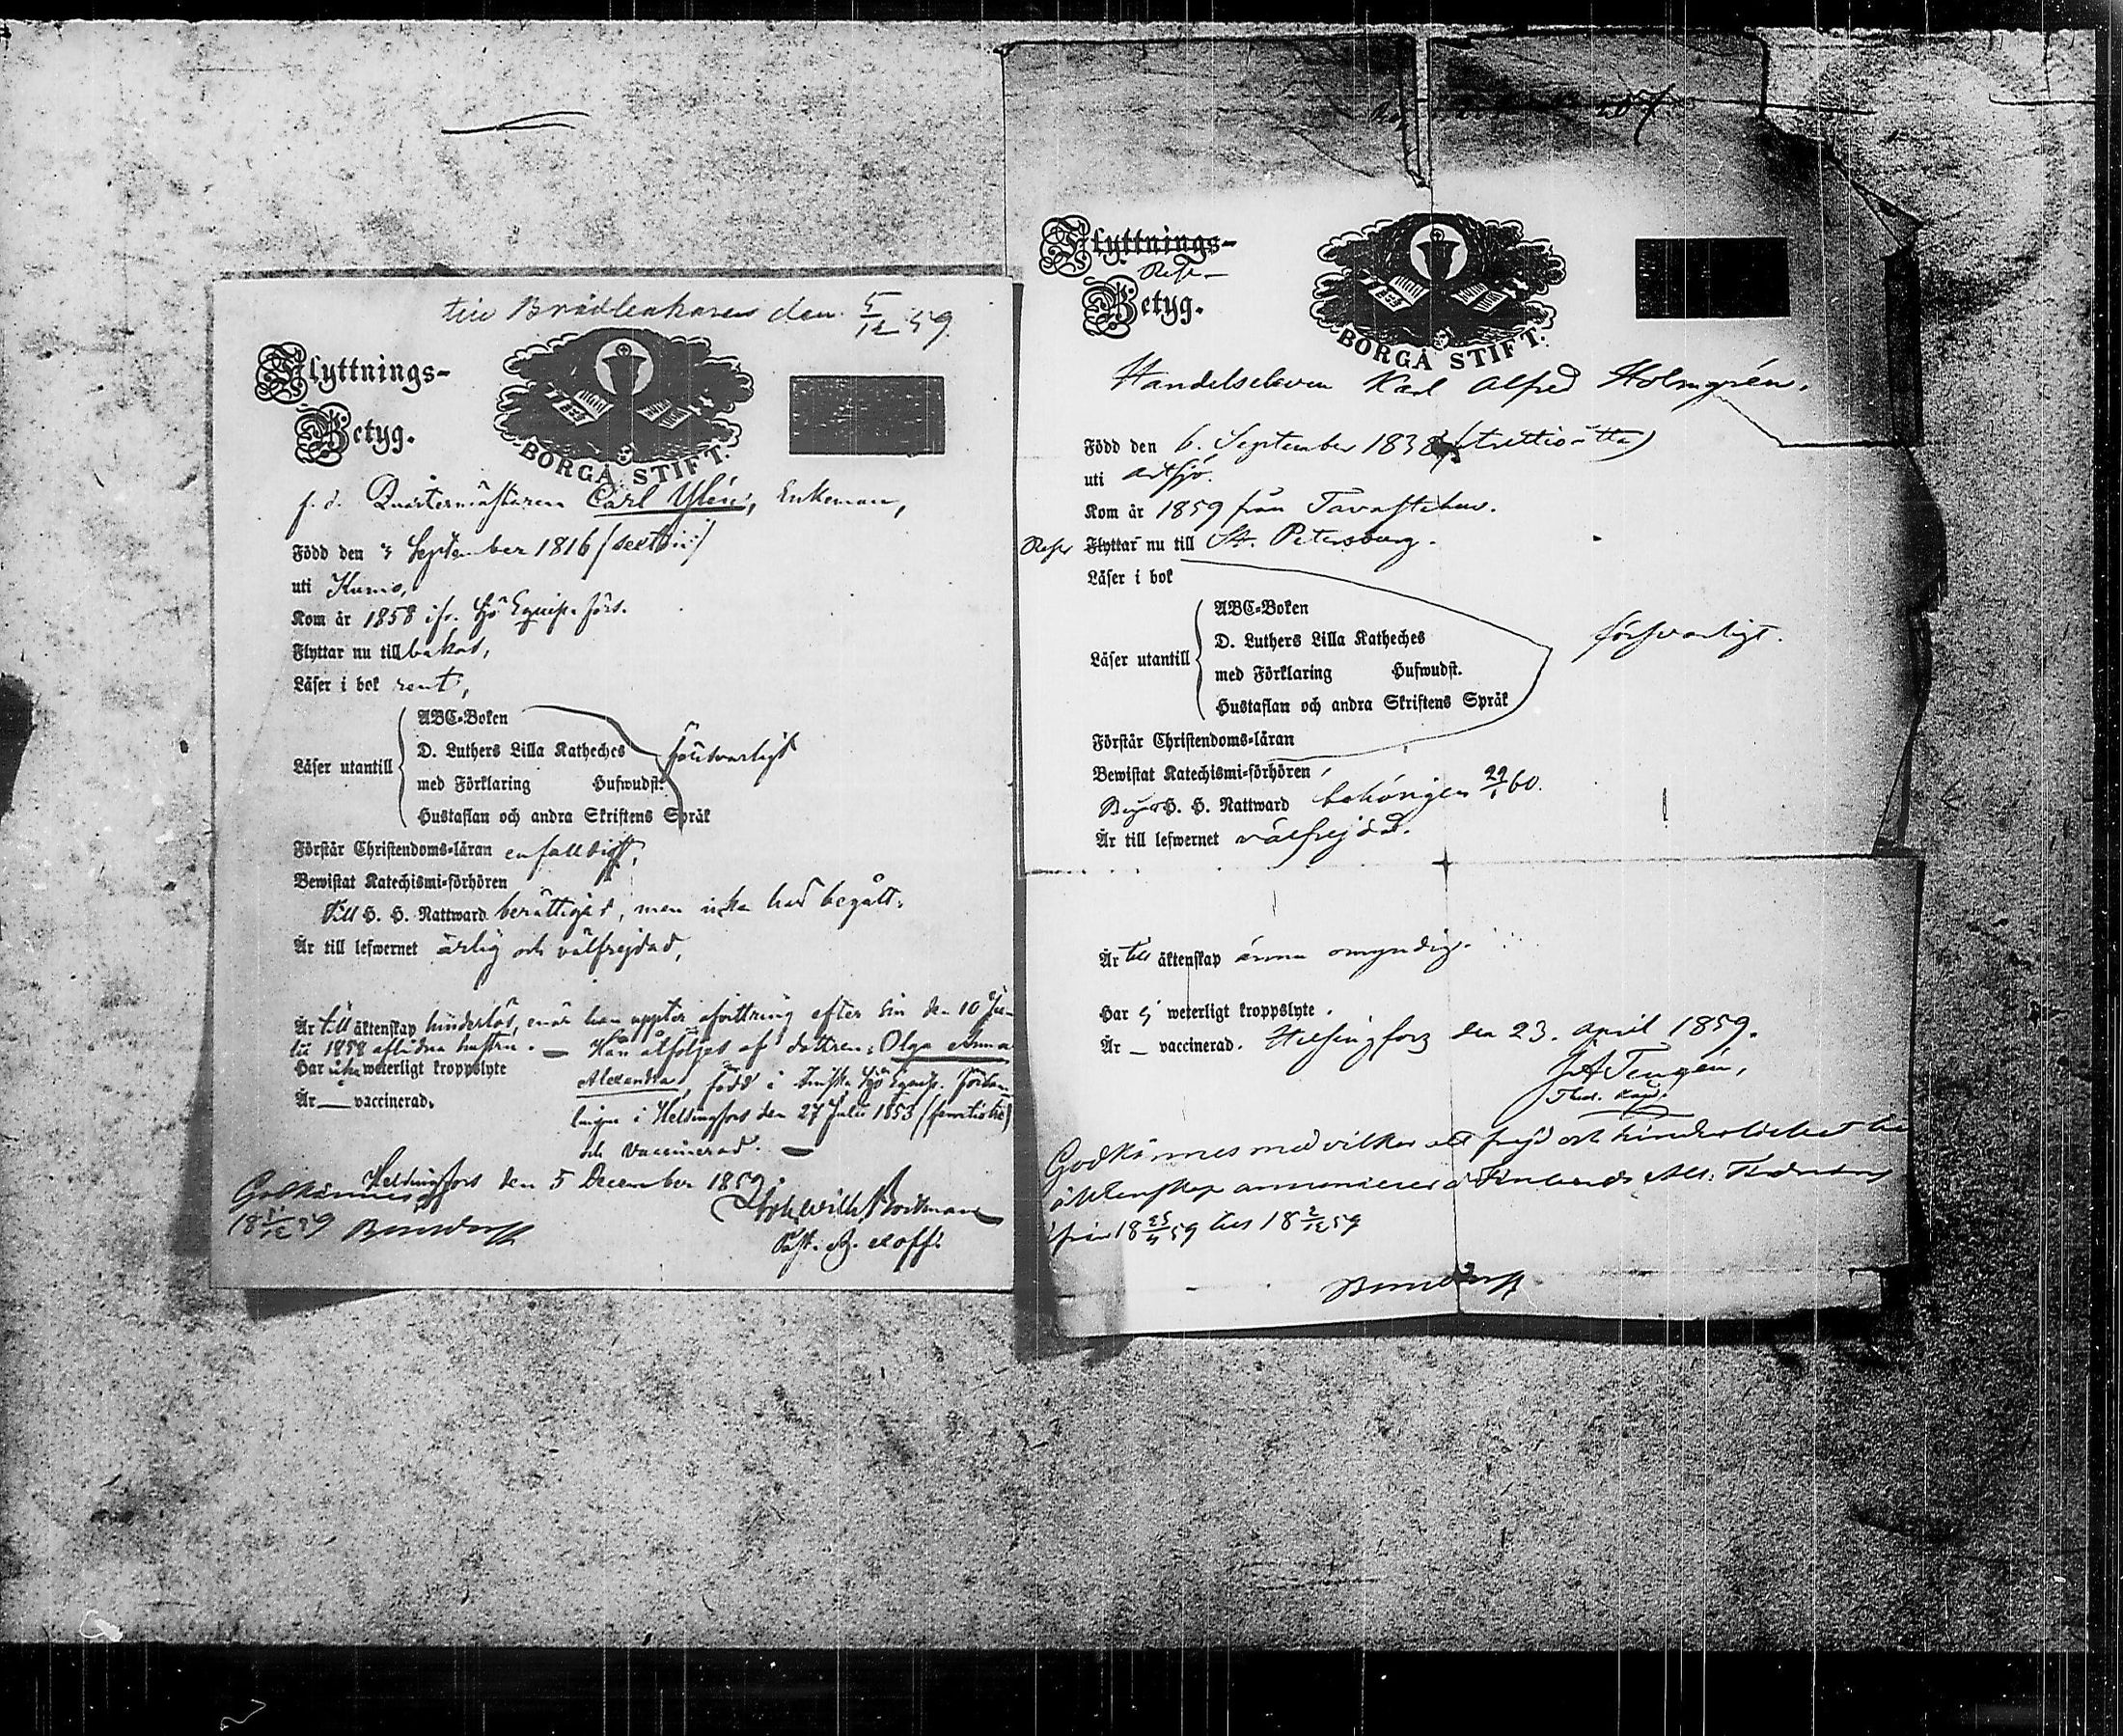 den 5/12 59.
Flyttnings-
Betyg.
BORGÅ STIFT.
f. d. Quartermästaren Carl Ylén, Enkeman,
Född den 3 September 1816 (sexton)
uti Kumo,
Kom år 1858 ifr. Sjö Equip. förs.
Flyttar nu till bakas,
Läser i bok rent,
Läser utantill
ABC-Boken
D. Luthers Lilla Katheches
med Förklaring Hufwudst.
Hustaflan och andra Skriftens Språk
försvarligt
Förstår Christendoms-läran enfalldigt,
Bewistat Katechismi-förhören
Till H. H. Nattward berättigad, men icke har begått.
Är till lefwernet ärlig och välfrejdad,
Är till äktenskap hinderlös, enär han uppter afvittring efter sin den 10 Ju-
lii 1858 aflidna hustru. — Han åtföljes af dottren Olga Anna
Har icke weterligt kroppslyte
Alexandra, född i Finska Sjö Equip. Församlingen i Helsingfors den 27 Julii 1853 (femtiotre)
Är — vaccinerad.
och vaccinerad. —
Helsingfors den 5 December 1859.
Godkännes
18 5/12 59
Joh. Wilh. Borkman
Past. Adj.
Flyttnings-
Rese-
Betyg.
BORGÅ STIFT.
Handelseleven Karl Alfred Holmgrén.
Född den 6. September 1838 (trettioåtta)
uti Artsjö.
Kom år 1859 från Tavastehus.
Reser Flyttar nu till St. Petersburg.
Läser i bok
Läser utantill
ABC-Boken
D. Luthers Lilla Katheches
med Förklaring Hufwudst.
Hustaflan och andra Skriftens Språk
försvarligt.
Förstår Christendoms-läran
Bewistat Katechismi-förhören
Beg. H. H. Nattward behörigen 22/1 60.
Är till lefwernet välfrejdad.
Är till äktenskap ännu omyndig.
Har ej weterligt kroppslyte.
Är — vaccinerad. Helsingfors den 23. April 1859.
J. A. Tengén,
Theol. Kand.
Godkännes med vilkor att frejd och hinderlöshet till
äktenskap annonceras i Finlands Allm. Tidning
från 18 23/4 59 till 18 2/12 59